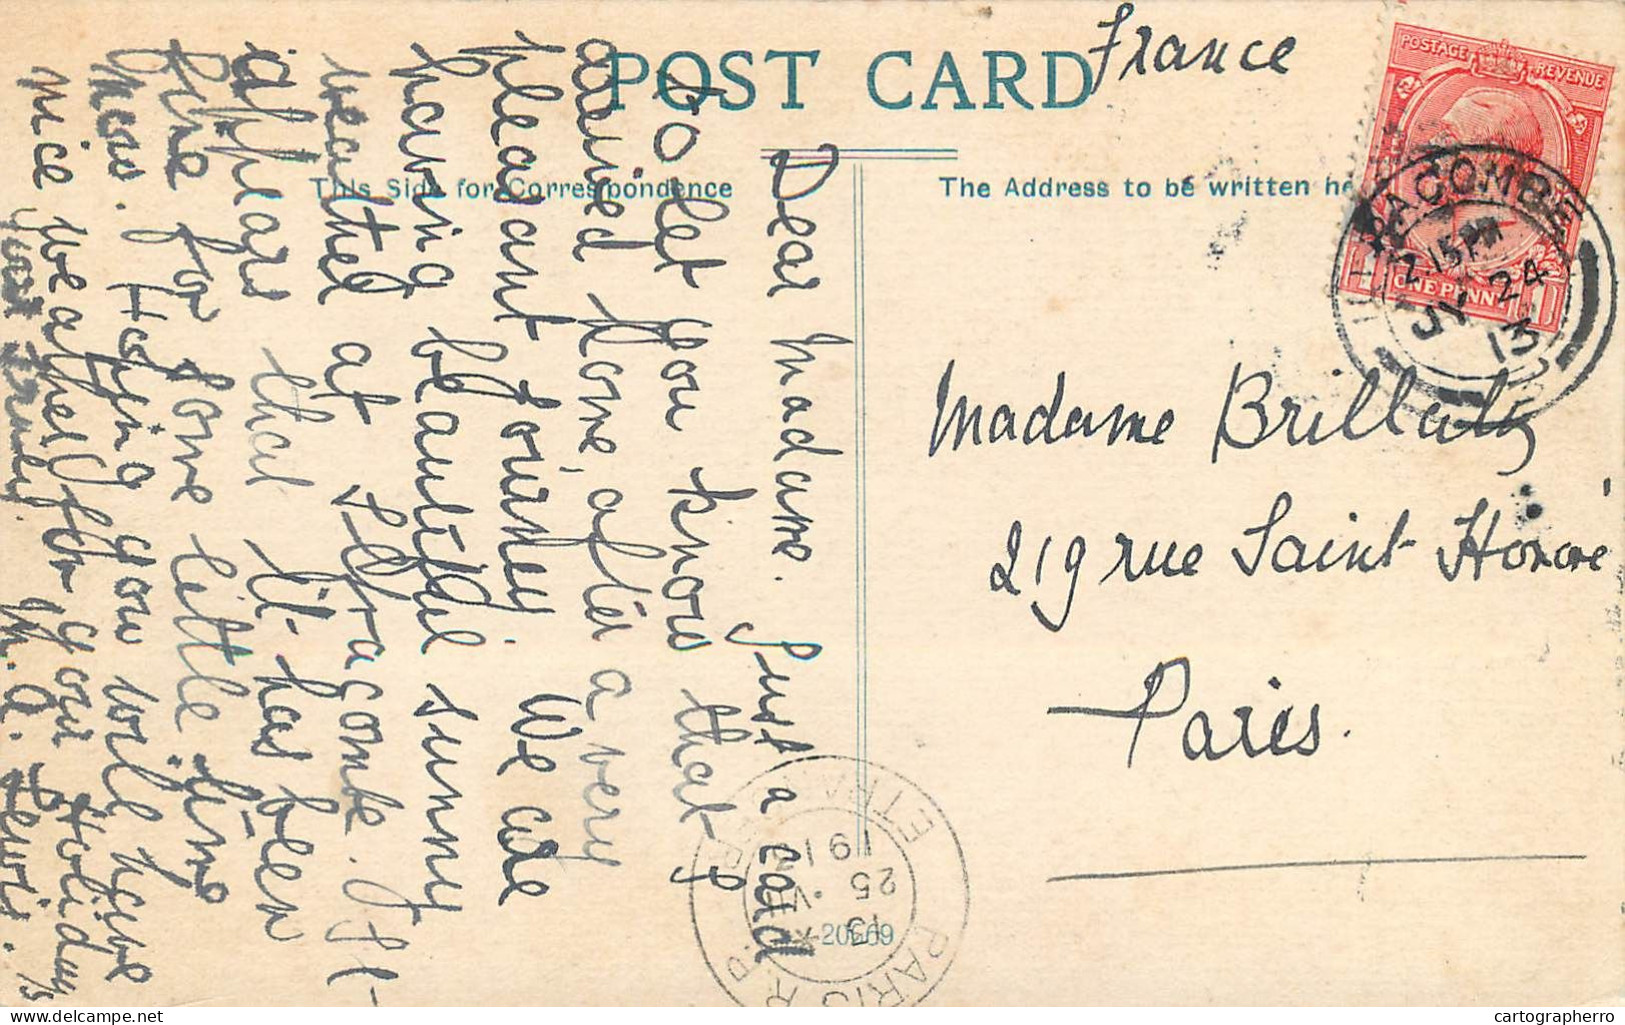 POST CARD
France
This Side for Correspondence
The Address to be written he
POSTAGE REVENUE
ONE PENNY
ILFRACOMBE
2.15 PM
JY 24
13
Dear Madame. Just a card
to let you know that I
arrived home, after a very
pleasant journey. We are
having beautiful sunny
weather at Ilfracombe. It
appears that it has been
fine for some little time
Mess. Hoping you will have
nice weather for your Holidays
Yours truly. M. A. Lewis.
Madame Brillaty
219 rue Saint Honoré
Paris.
PARIS R.P. ETRANGER
25
1913
20669
cartographerro